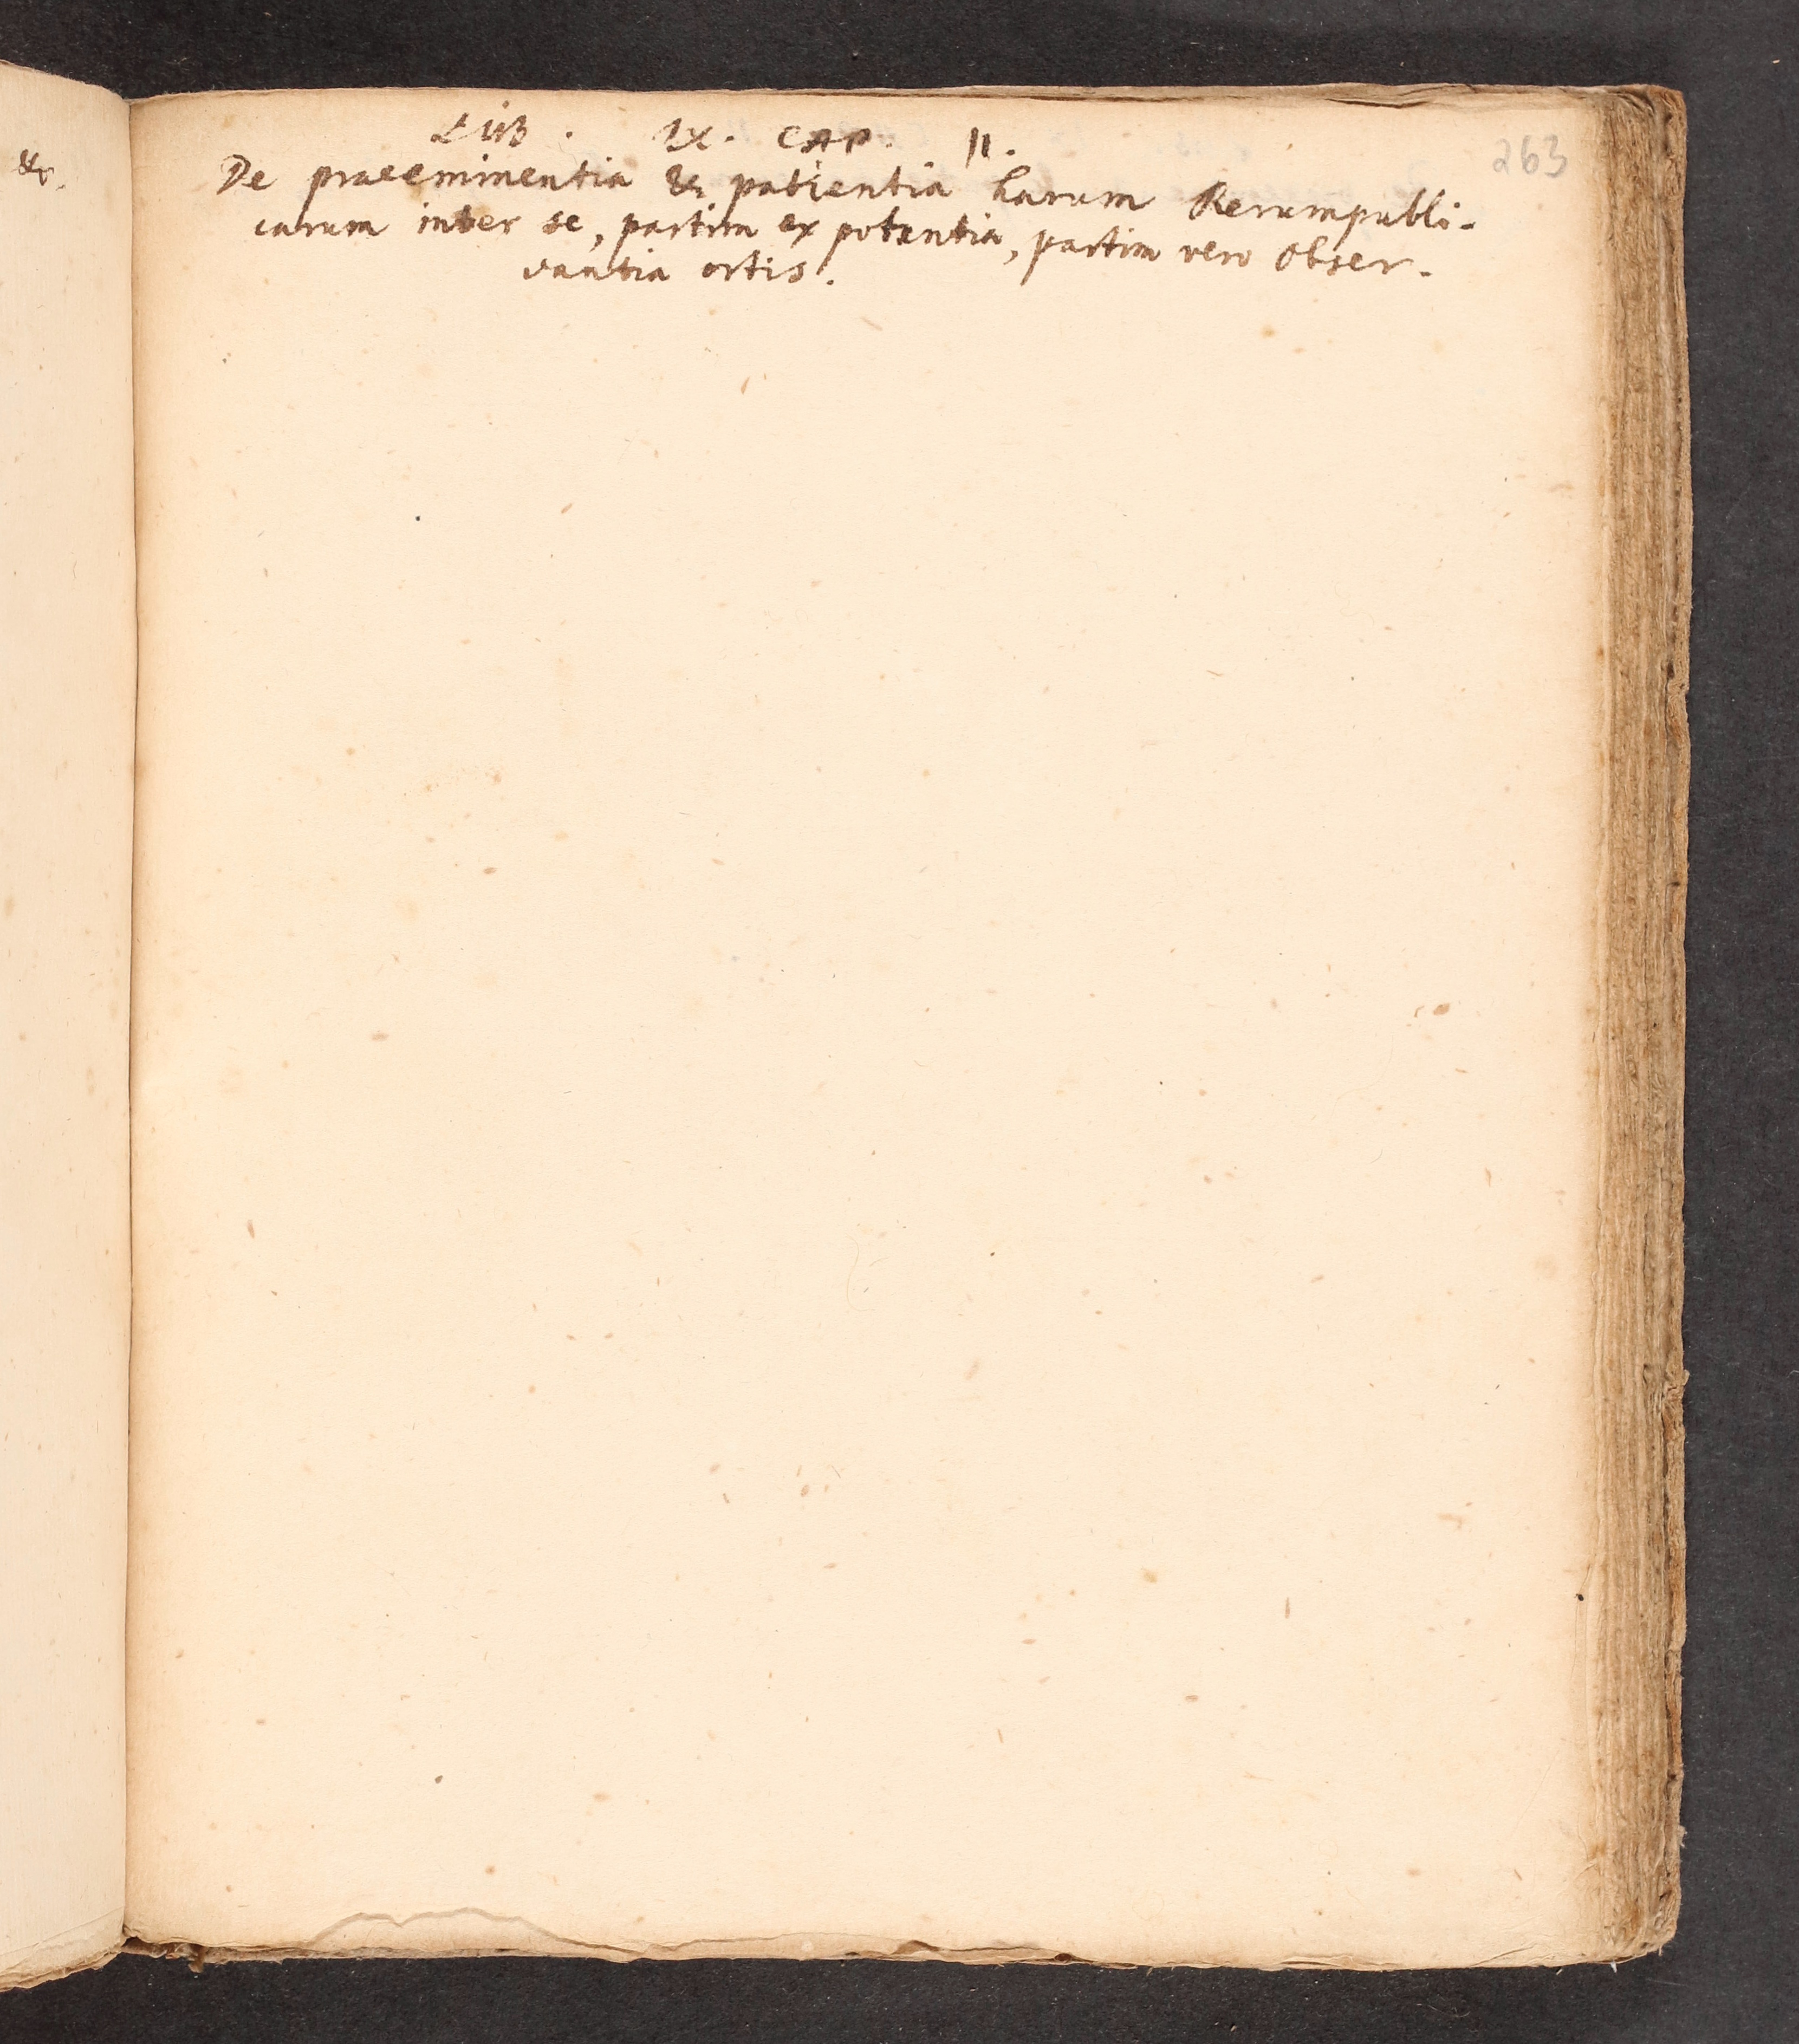 &c.
LIB. IX. CAP. II.
263
De praeeminentia & patientia harum Rerumpubli-
carum inter se, partim ex potentia, partim vero obser-
vantia ortis.